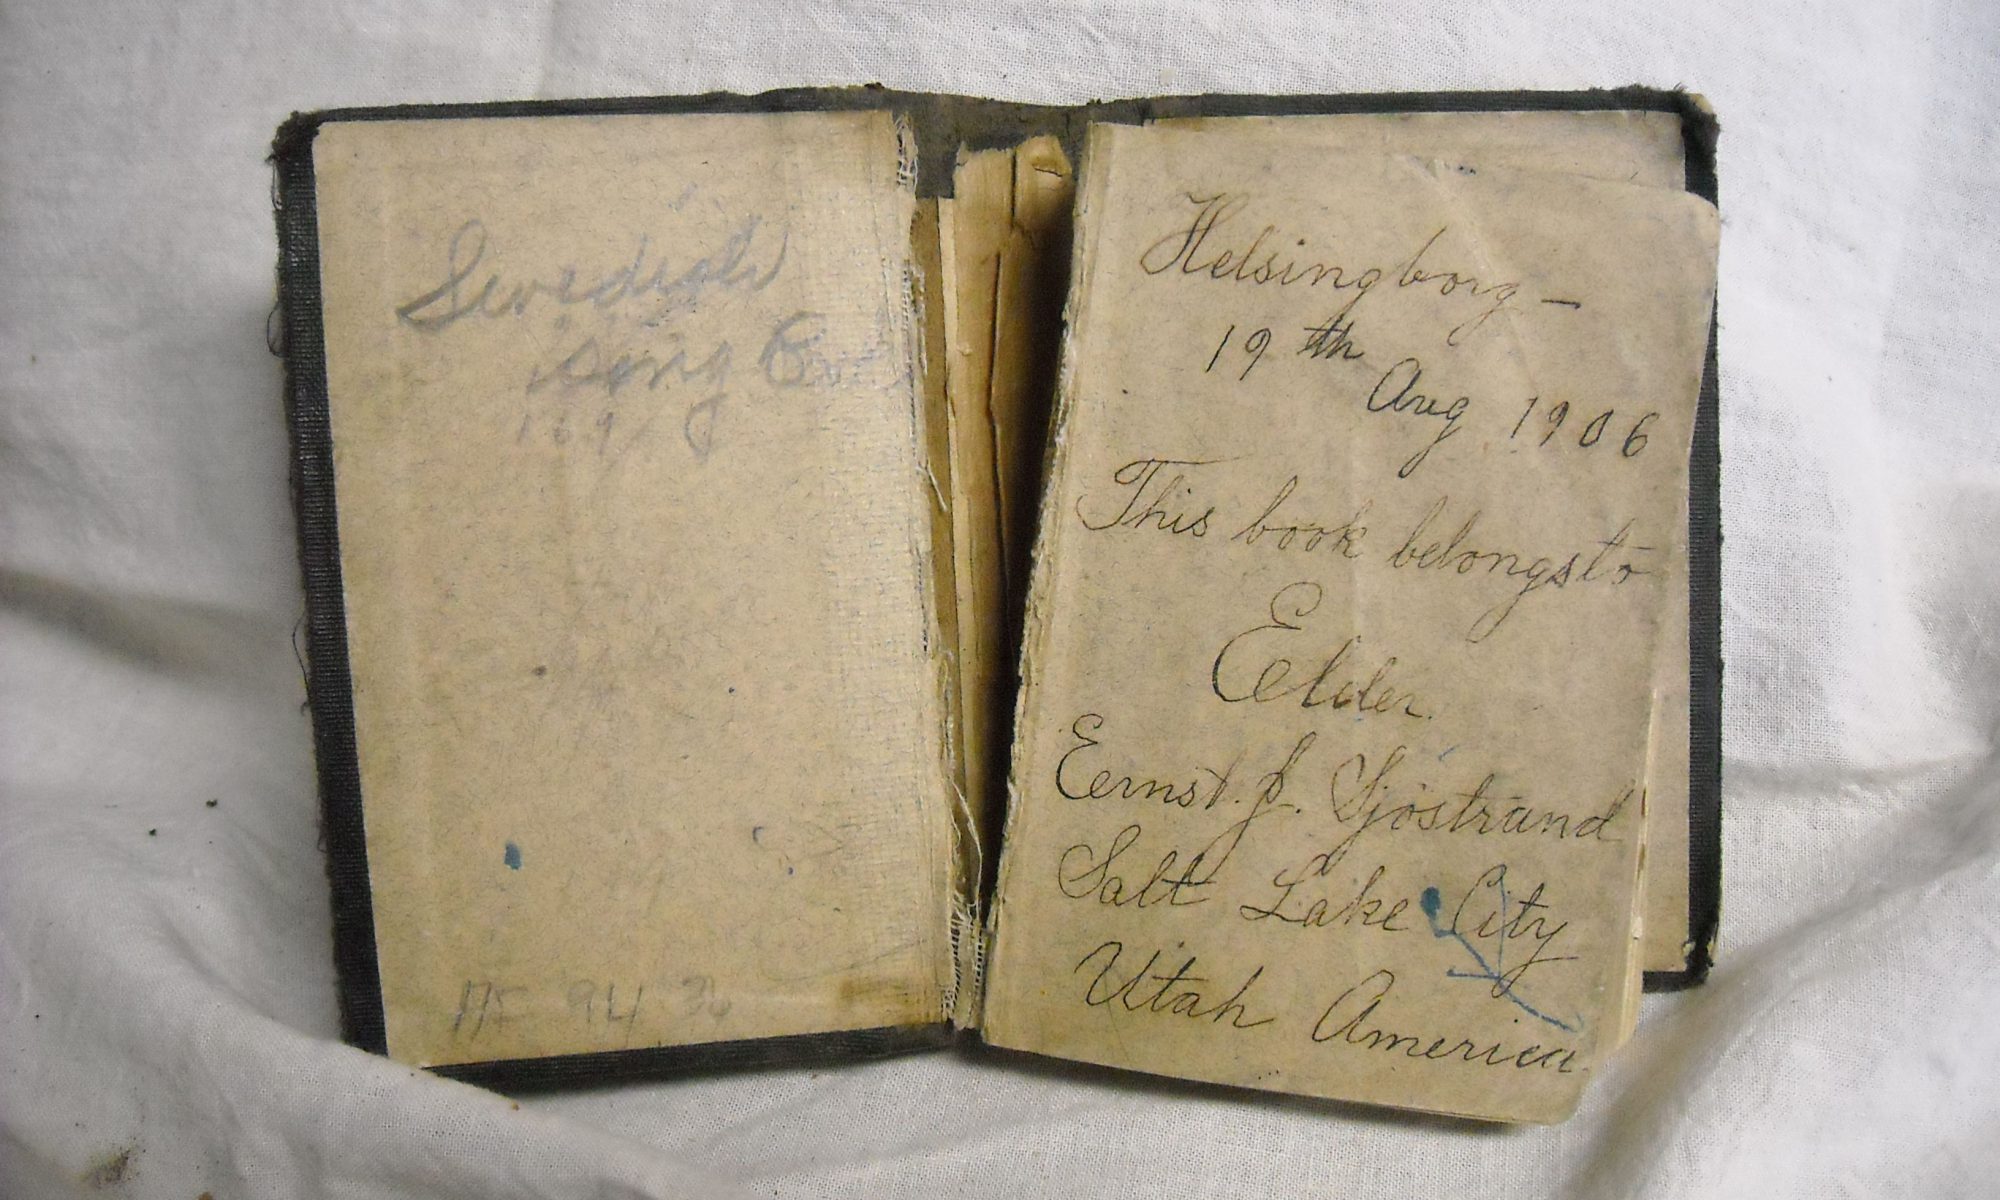 Swedish
Song
Helsingborg –
19th
Aug 1906
This book belongs to
Elder
Eernst. J. Sjöstrand
Salt Lake City
Utah America.